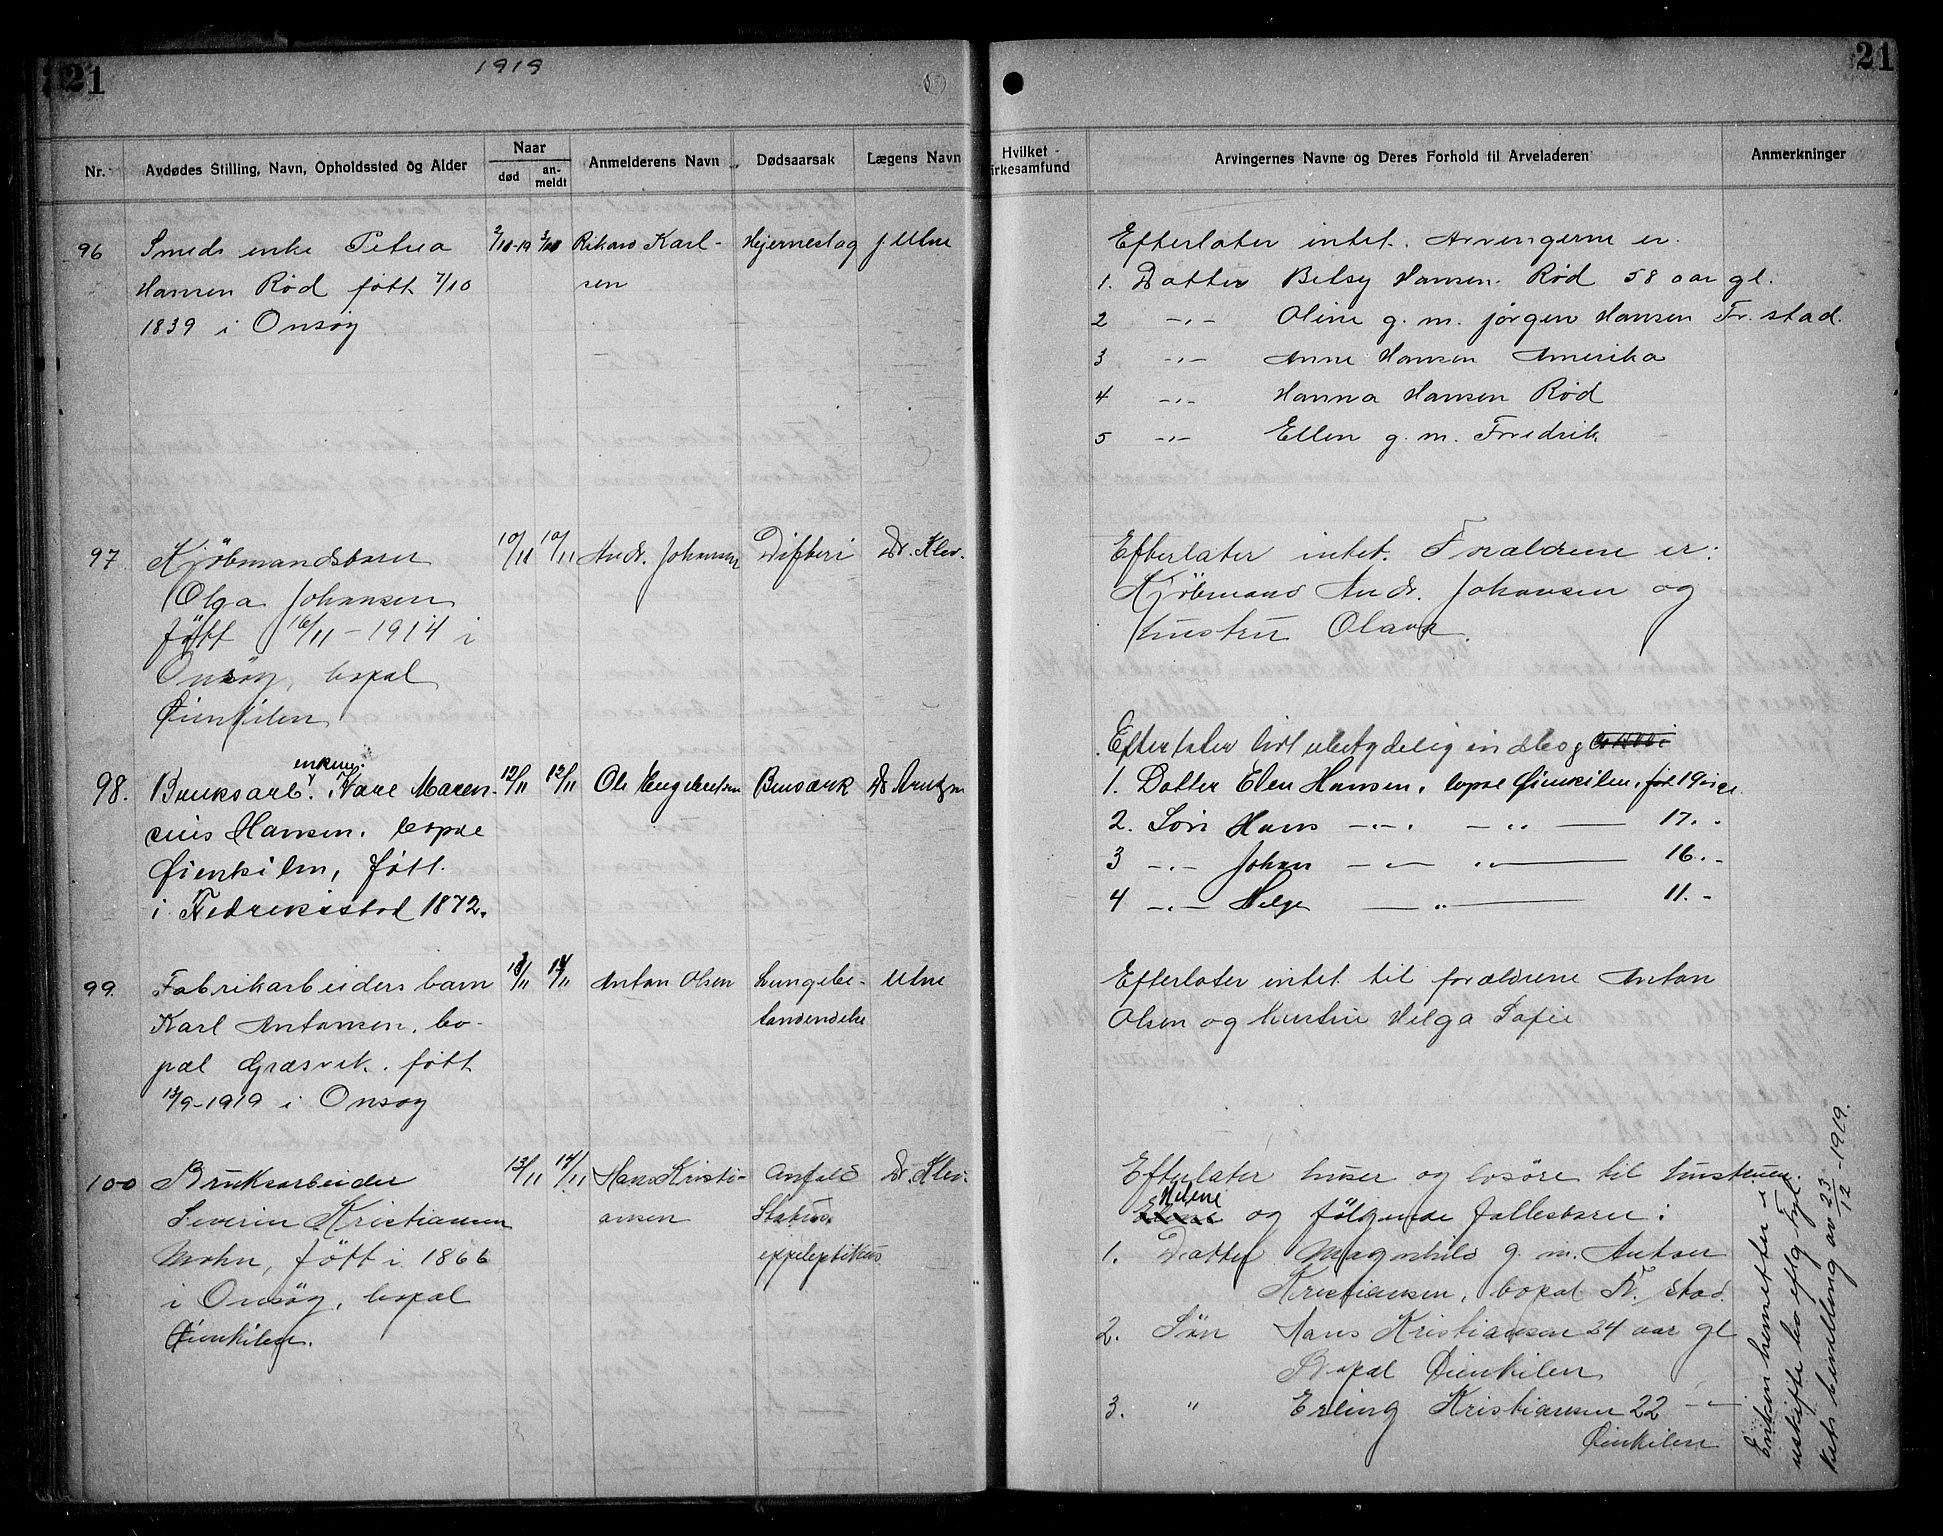 21
1919
21
Nr.
Avdødes Stilling, Navn, Opholdssted og Alder
Naar
død
an-
meldt
Anmelderens Navn
Dødsaarsak
Lægens Navn
Hvilket
irkesamfund
Arvingernes Navne og Deres Forhold til Arveladeren
Anmerkninger
96 Smeds enke Petrea 2/10-19 3/10 Rikard Karl- Hjerneslag J. Utne
Hansen Rød født 7/10 sen
1839 i Onsøy
Efterlater intet. Arvingerne er
1. Datter Betsy Hansen Rød 58 aar gl.
2 -"- Oline g. m. Jørgen Hansen Fr. stad.
3 -"- Anne Hansen Amerika
4 -"- Hanna Hansen Rød
5 -"- Ellen g. m. Fredrik
97 Kjøbmandsbarn 10/11 10/11 Andr. Johansen Difteri Dr. Klev.
Olga Johansen
født 16/11-1914 i
Onsøy, bopæl
Øienkilen
Efterlater intet. Forældrene er:
Kjøbmand Andr. Johansen og
hustru Olava.
98. Bruksarb. enkem. Kare Maren- 12/11 12/11 Ole Engebretsen Brusærk Dr Arntzen
sius Hansen. bopæl
Øienkilen, født
i Fredrikstad 1872.
Efterlater lidt ubetydelig indbo
1. Datter Elen Hansen, bopæl Øienkilen, født 19
2. Søn Hans -"- -"- 17. -
3 -"- Johan -"- -"- 16. -
4 -"- Helge -"- 11. -
99. Fabrikarbeiders barn 13/11 14/11 Anton Olsen Lungebe- Utne
Karl Antonsen, bo- tændelse
pæl Græsvik. født
13/9-1919 i Onsøy
Efterlater intet til forældrene Anton
Olsen og hustru Helga Sofie
100 Bruksarbeider 13/11 14/11 Hans Kristi- Anfald Dr. Klev.
Severin Kristiansen ansen Status
Mohn, født i 1866 eppileptikus
i Onsøy, bopæl
Øienkilen.
Efterlater huser og løsøre til hustruen
Helene og følgende fellesbarn:
1. Datter Magnhild g. m. Anton
Kristiansen, bopæl Fr. stad.
2. Søn Hans Kristiansen 24 aar gl
Bopæl Øienkilen
3. " Erling Kristiansen 22 -"-
Øienkilen
Enken hensitter i
uskiftet bo eftg fyl-
kets bevilling av 23/12-1919.